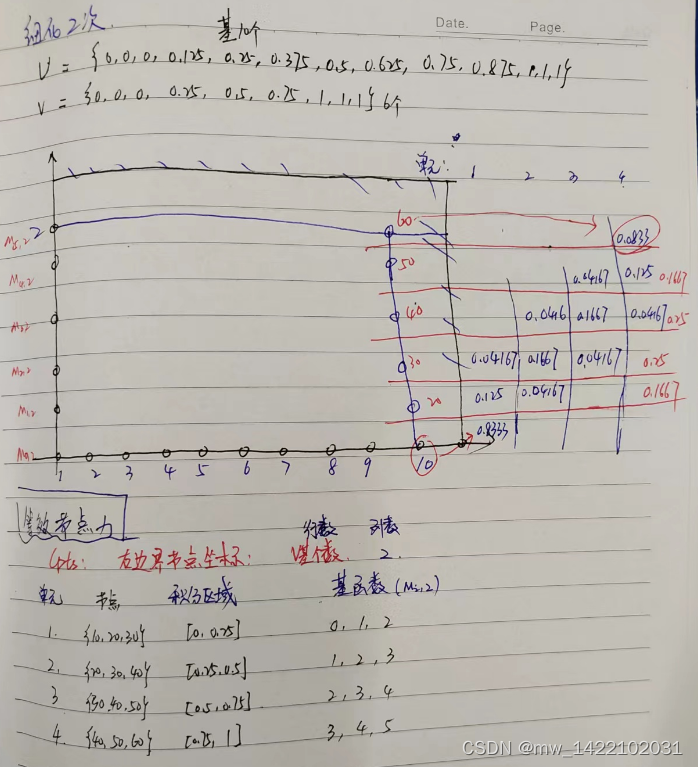 Date. Page.
细化2次. 基10个
U = {0,0,0,0.125,0.25,0.375,0.5,0.625,0.75,0.875,1,1,1}
V = {0,0,0,0.25,0.5,0.75,1,1,1} 6个
单元: 1 2 3 4
2 60 0.0833
M5,2
M4,2 50 0.04167 0.125 0.1667
M3,2 40 0.0416 0.1667 0.04167 0.25
M2,2 30 0.04167 0.1667 0.04167 0.25
M1,2 20 0.125 0.04167 0.1667
M0,2 0.8333
1 2 3 4 5 6 7 8 9 10
等效节点力
行数 列数
Cpts: 右边界节点坐标: V基个数. 2.
单元 节点 积分区域 基函数 (Mi,2)
1. {10,20,30} [0,0.25] 0,1,2
2. {20,30,40} [0.25,0.5] 1,2,3
3 {30,40,50} [0.5,0.75] 2,3,4
4. {40,50,60} [0.75,1] 3,4,5
CSDN @mw_1422102031